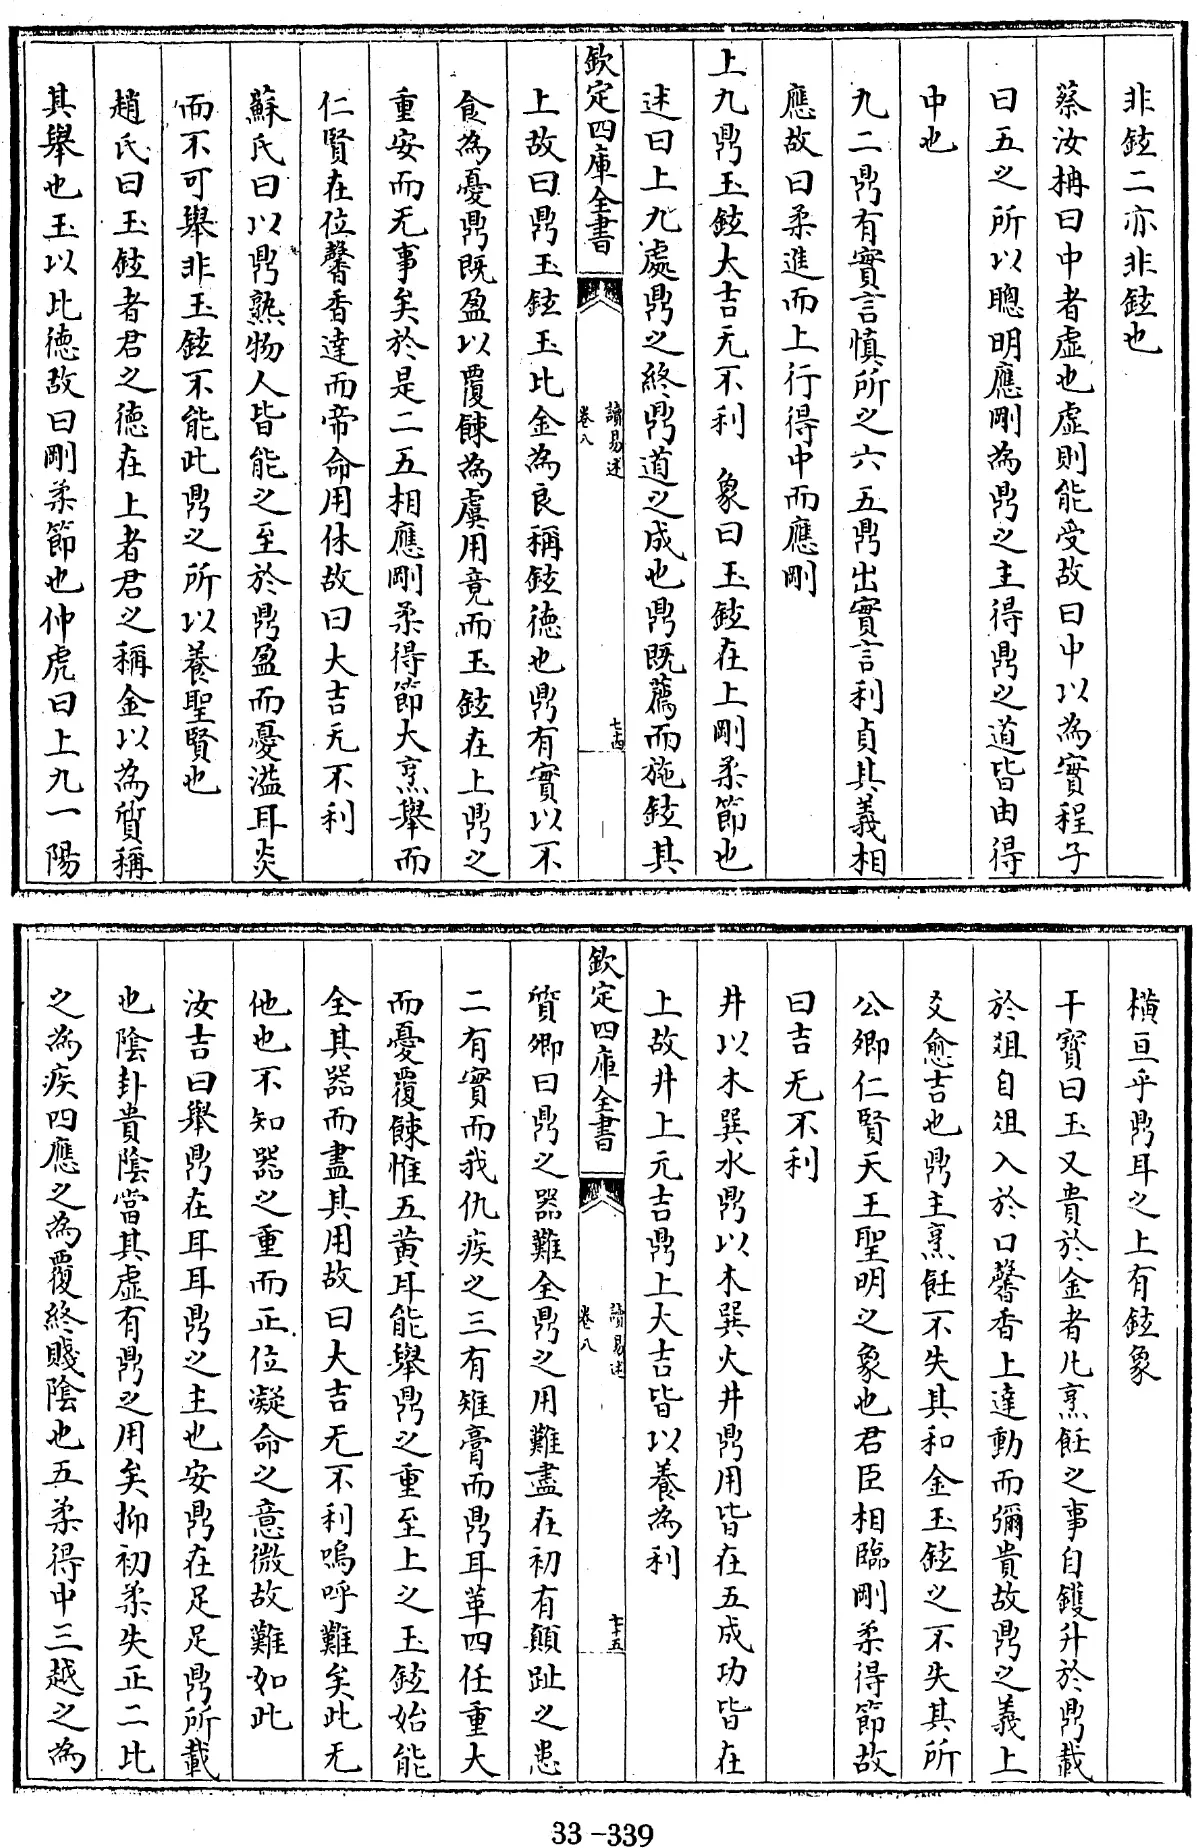 非鉉二亦非鉉也
蔡汝柟曰中者虛也虛則能受故曰中以為實程子
曰五之所以聰明應剛為鼎之主得鼎之道皆由得
中也
九二鼎有實言慎所之六五鼎出實言利貞其義相
應故曰柔進而上行得中而應剛
上九鼎玉鉉大吉无不利　象曰玉鉉在上剛柔節也
述曰上九處鼎之終鼎道之成也鼎既薦而施鉉其
欽定四庫全書
讀易述
卷八
七十四
上故曰鼎玉鉉玉比金為良稱鉉德也鼎有實以不
食為憂鼎既盈以覆餗為虞用竟而玉鉉在上鼎之
重安而无事矣於是二五相應剛柔得節大烹舉而
仁賢在位馨香達而帝命用休故曰大吉无不利
蘇氏曰以鼎熟物人皆能之至於鼎盈而憂溢耳炎
而不可舉非玉鉉不能此鼎之所以養聖賢也
趙氏曰玉鉉者君之德在上者君之稱金以為質稱
其舉也玉以比德故曰剛柔節也仲虎曰上九一陽
橫亘乎鼎耳之上有鉉象
干寶曰玉又貴於金者凡烹飪之事自鑊升於鼎載
於俎自俎入於口馨香上達動而彌貴故鼎之義上
爻愈吉也鼎主烹飪不失其和金玉鉉之不失其所
公卿仁賢天王聖明之象也君臣相臨剛柔得節故
曰吉无不利
井以木巽水鼎以木巽火井鼎用皆在五成功皆在
上故井上元吉鼎上大吉皆以養為利
欽定四庫全書
讀易述
卷八
七十五
質卿曰鼎之器難全鼎之用難盡在初有顛趾之患
二有實而我仇疾之三有雉膏而鼎耳革四任重大
而憂覆餗惟五黃耳能舉鼎之重至上之玉鉉始能
全其器而盡其用故曰大吉无不利嗚呼難矣此无
他也不知器之重而正位凝命之意微故難如此
汝吉曰舉鼎在耳耳鼎之主也安鼎在足足鼎所載
也陰卦貴陰當其虛有鼎之用矣抑初柔失正二比
之為疾四應之為覆終賤陰也五柔得中三越之為
33-339